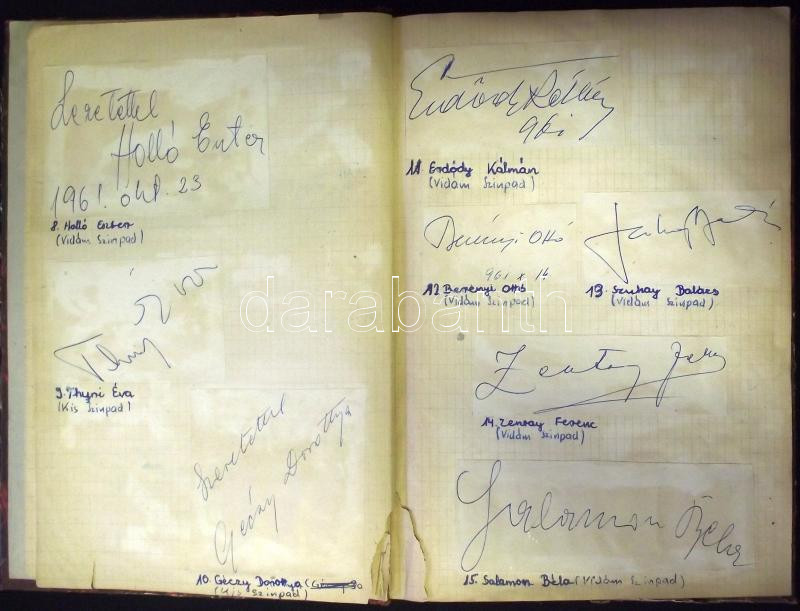 Szeretettel
Holló Eszter
1961. okt. 23
8. Holló Eszter
(Vidám Szinpad)
Thuri Éva
9. Thuri Éva
(Kis Szinpad)
Szeretettel
Géczy Dorottya
10. Géczy Dorottya
(Kis Szinpad)
Erdődy Kálmán
961
11. Erdődy Kálmán
(Vidám Szinpad)
Berényi Ottó
961 X 16.
12. Berényi Ottó
(Vidám Szinpad)
13. Szuhay Balázs
(Vidám Szinpad)
Zentay Ferenc
14. Zentay Ferenc
(Vidám Szinpad)
Salamon Béla
15. Salamon Béla (Vidám Szinpad)
darabanth